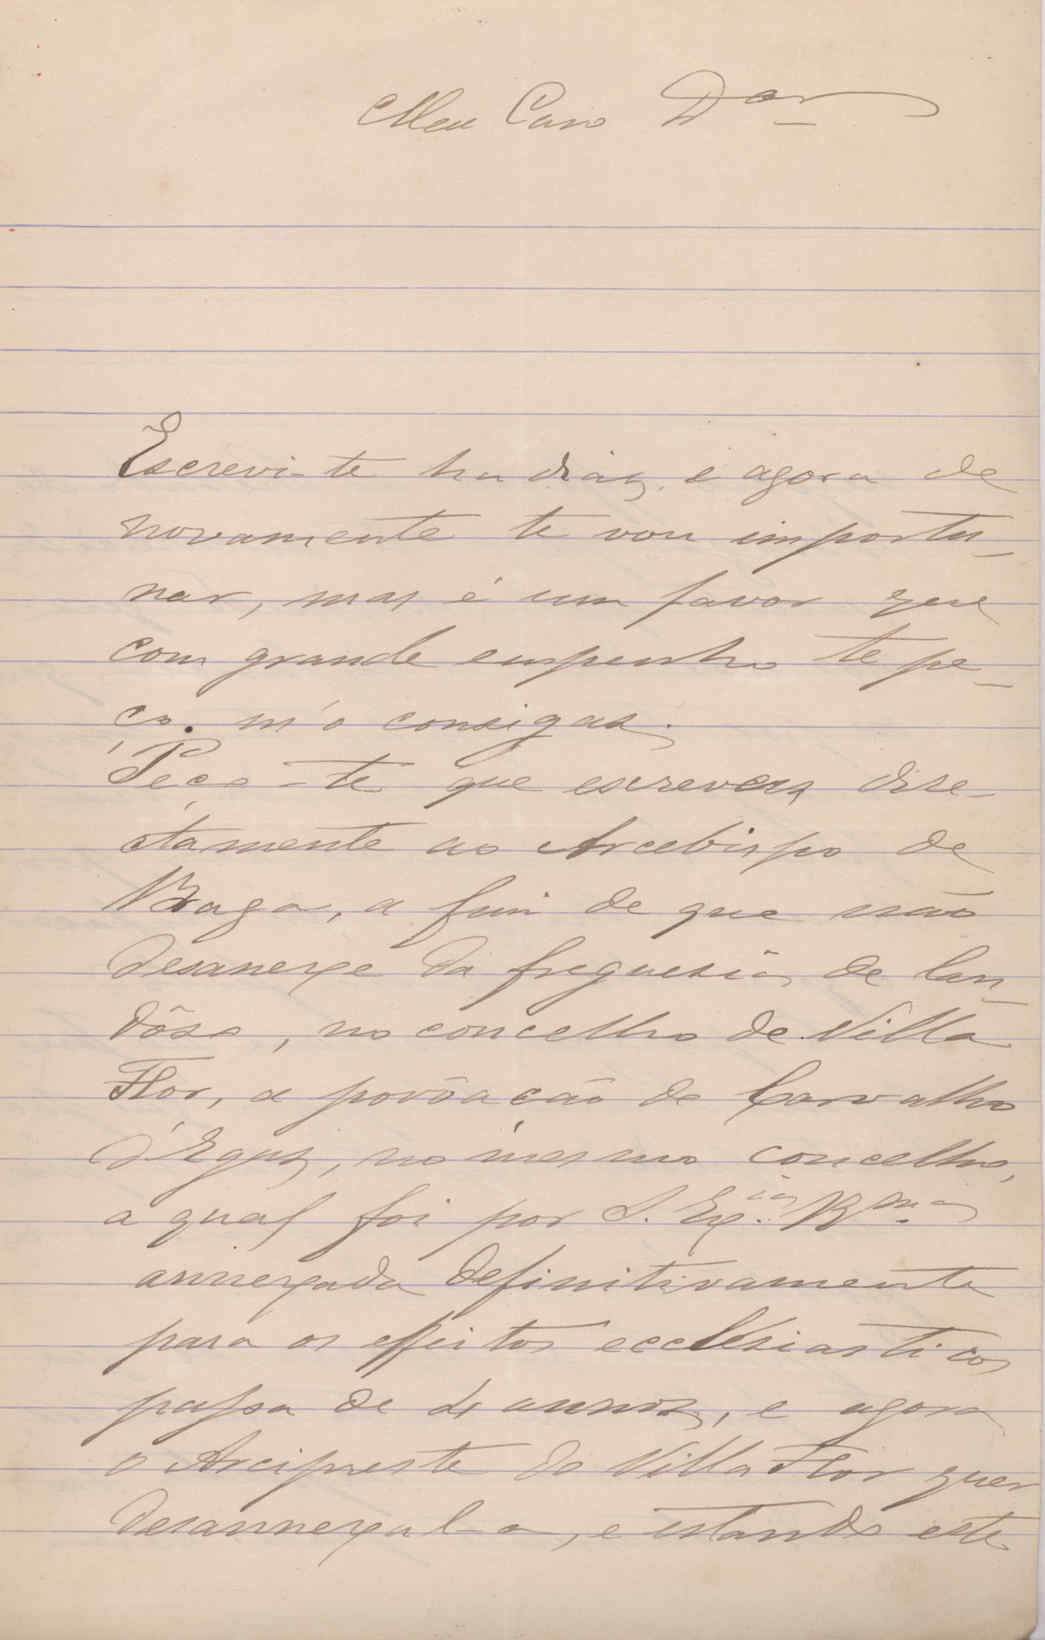 Meu Caro Dor
Escrevi-te ha dias, e agora de
novamente te vou importu-
nar, mas é um favor que
com grande empenho te pe-
ço. m'o consigas.
Peço-te que escrevas dire-
ctamente ao Arcebispo de
Braga, a fim de que não
desanexe da freguesia de Can-
dôso, no concelho de Villa
Flor, a povôação de Carvalho
d'Egas, no mesmo concelho,
a qual foi por S. Ex.cia Rma
annexada definitivamente
para os effeitos ecclesiasticos
passa de 4 annos, e agora
o Arcipreste de Villa Flor quer
desannexal-a, e estando este